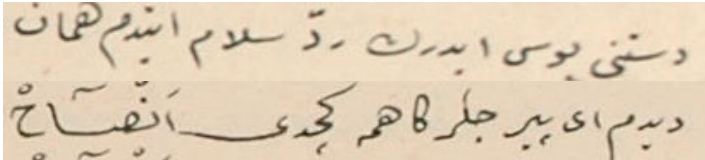 دستنی بوس ایدرك ردّ سلام ایتدم همان
دیدم ای پیر جلر کاهمه کچدی اَنْصَاحْ